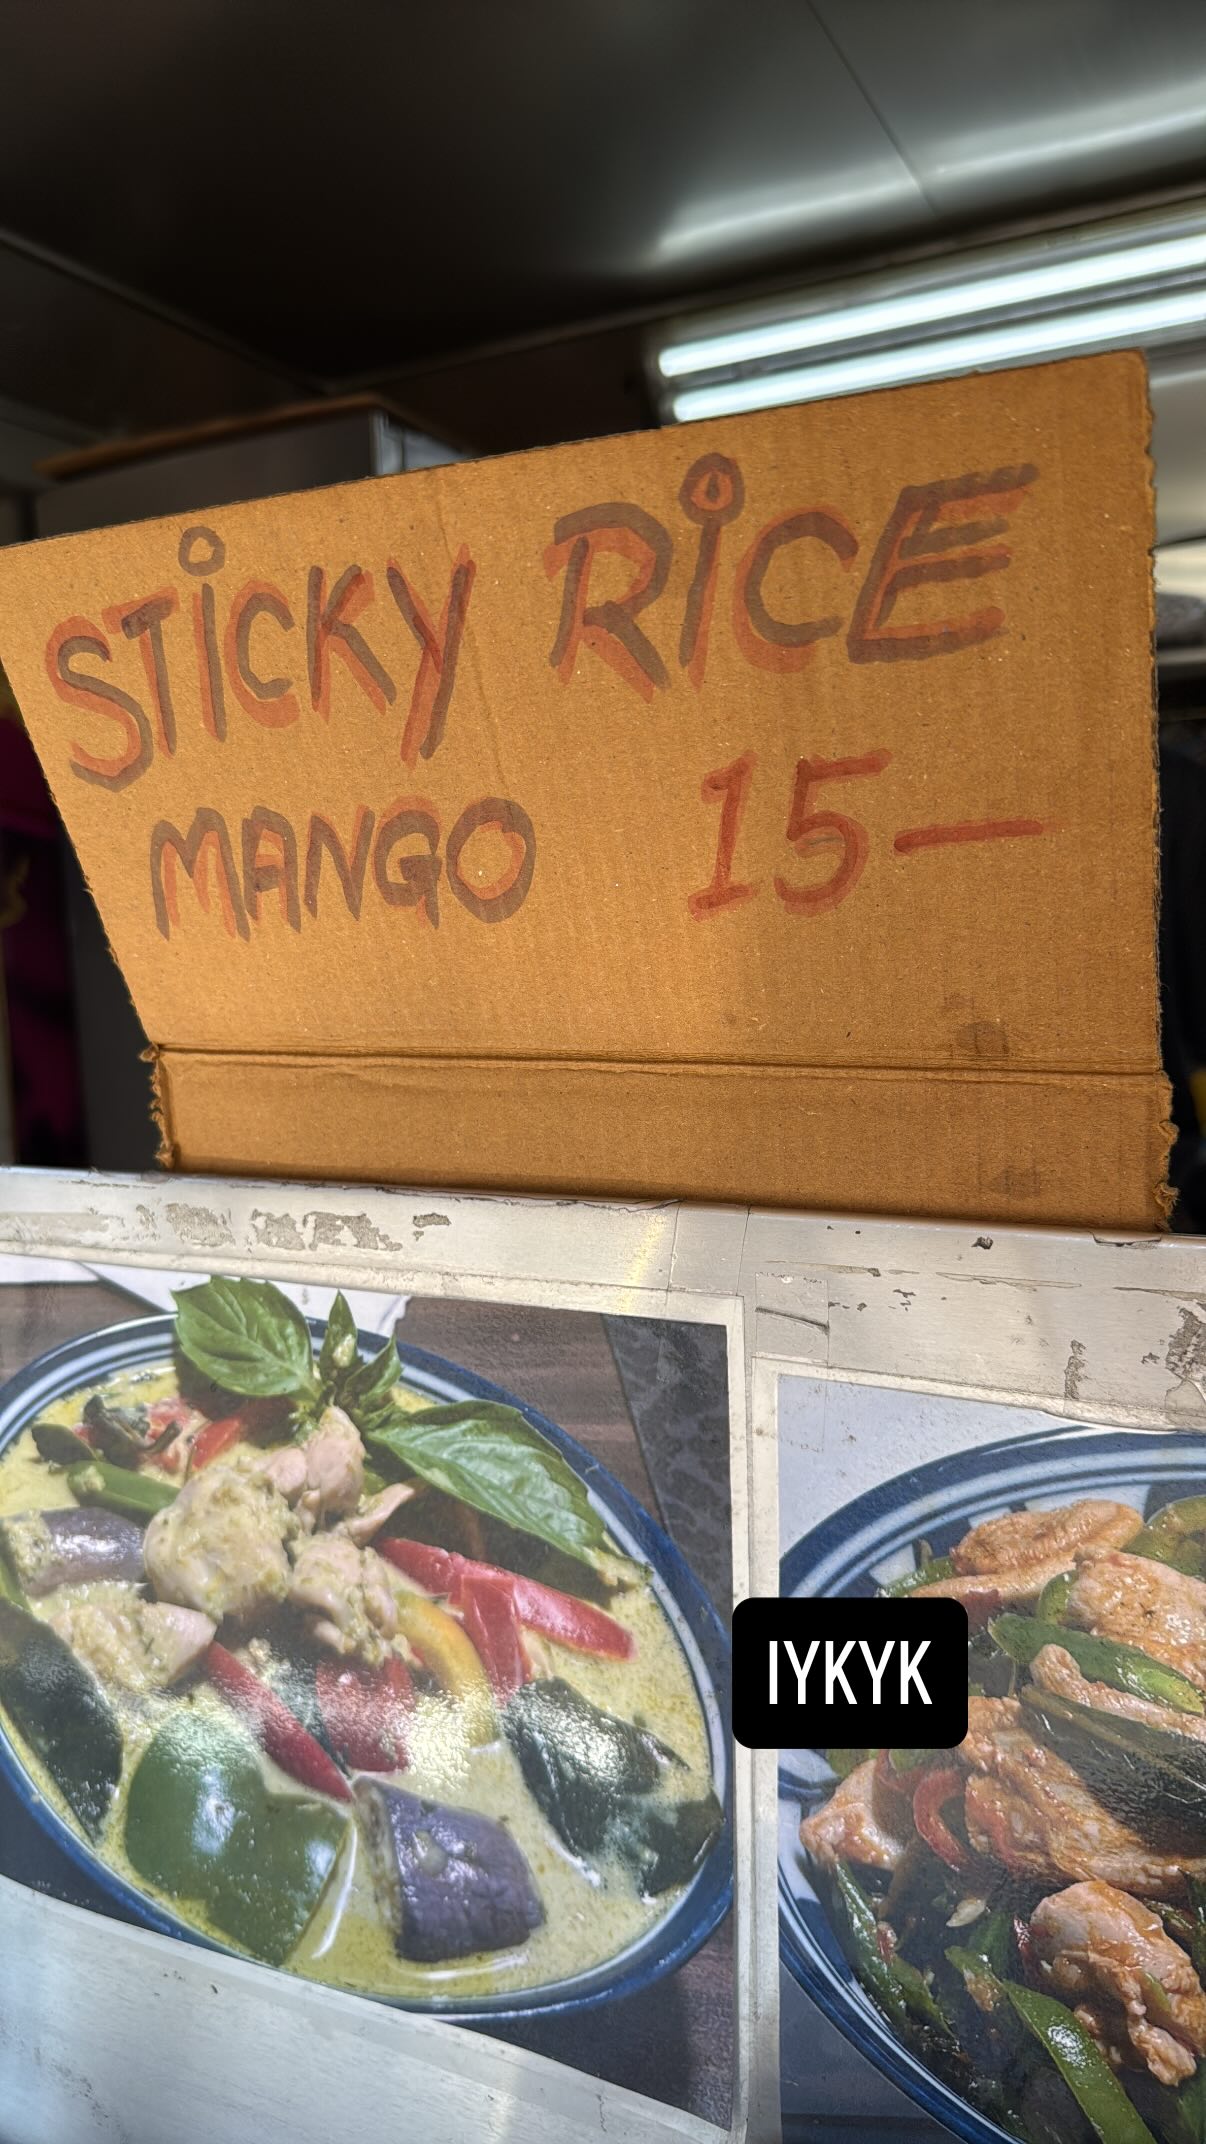 STiCKY RiCE
MANGO 15—
IYKYK